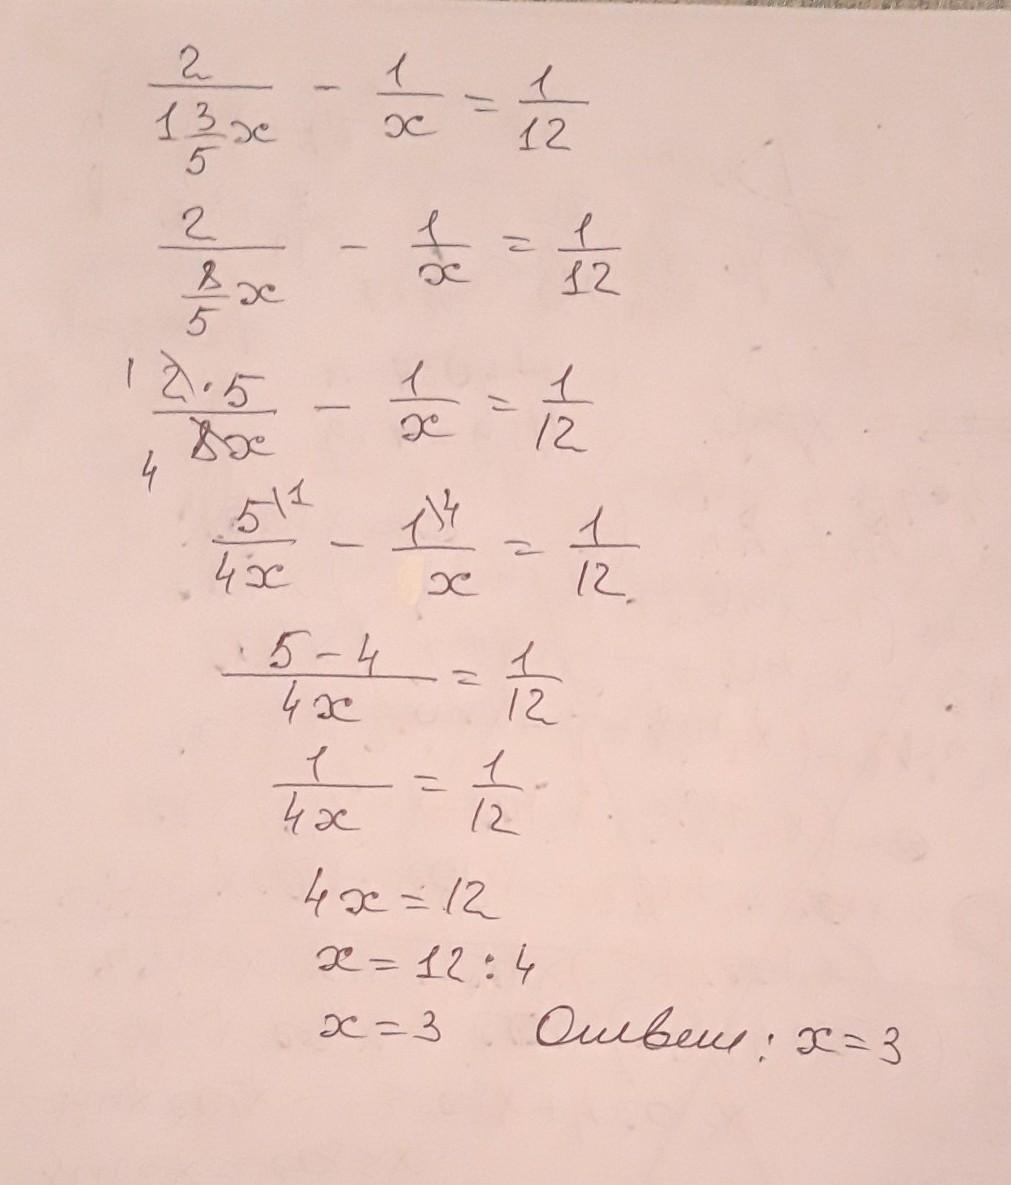 2/(1 3/5 x) - 1/x = 1/12
2/(8/5 x) - 1/x = 1/12
1 2·5/8x 4 - 1/x = 1/12
5\1/4x - 1\4/x = 1/12
(5-4)/4x = 1/12
1/4x = 1/12
4x = 12
x = 12 : 4
x = 3 Ответ: x = 3